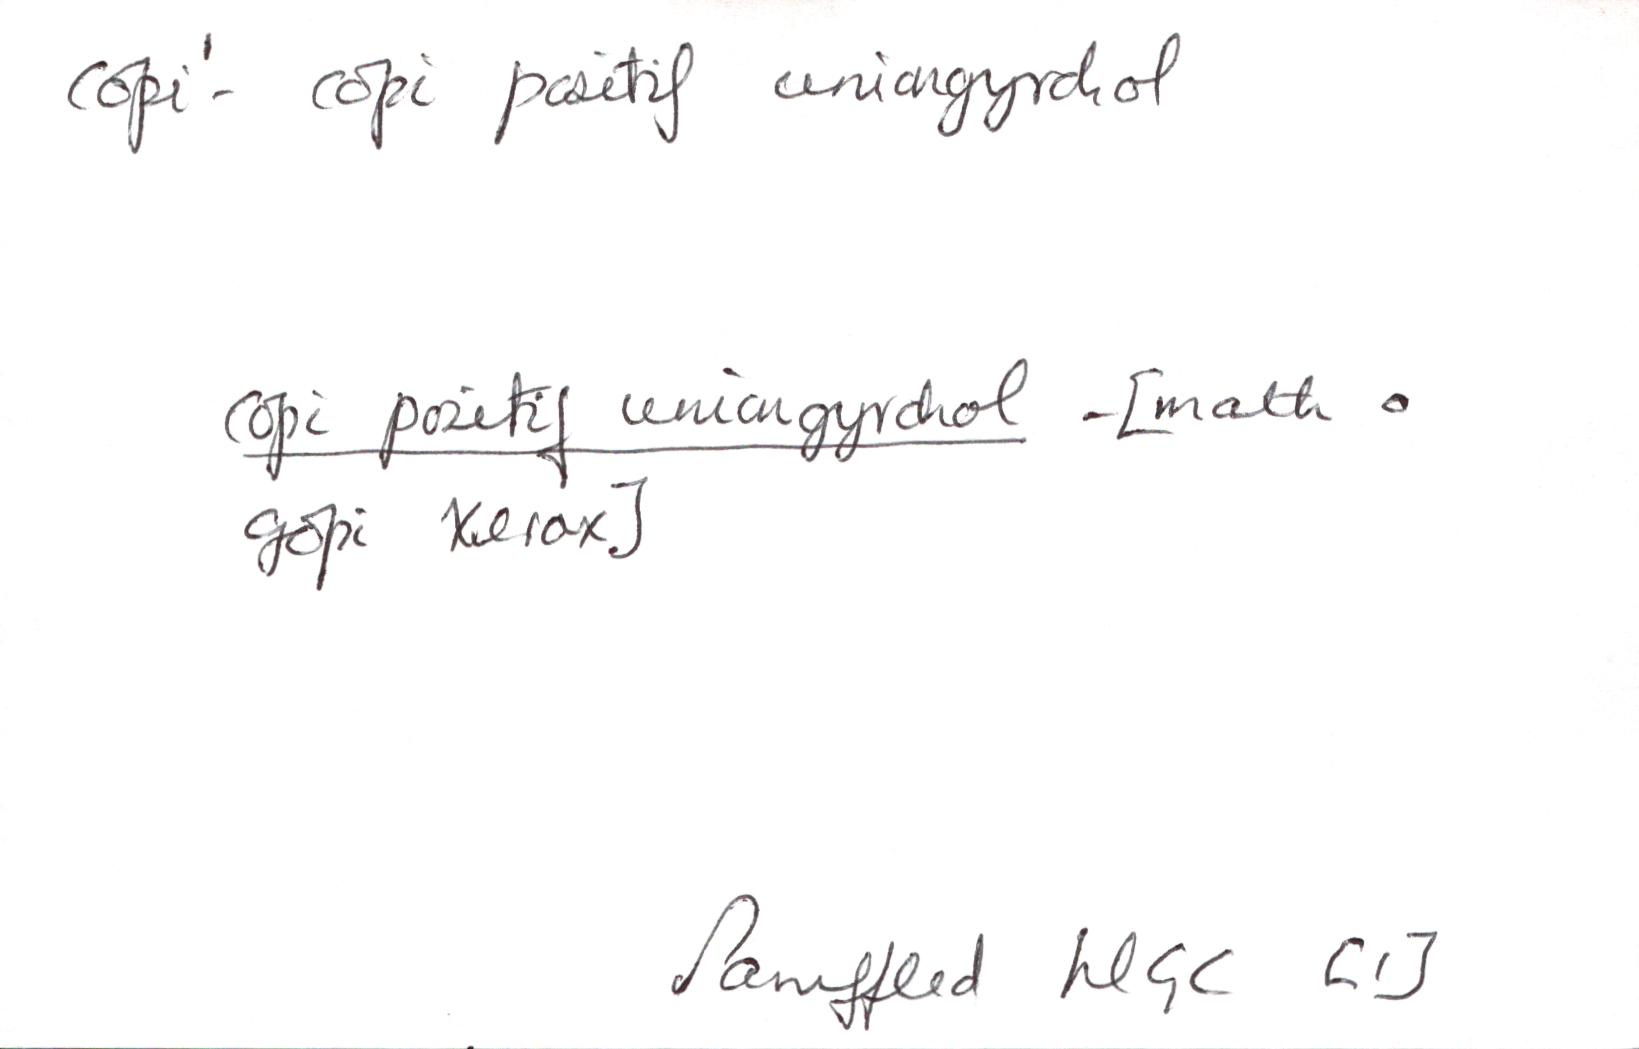 copi¹ - copi positif uniongyrchol
copi positif uniongyrchol - [math o
gopi Xerox]
Pamffled LlGC [1]